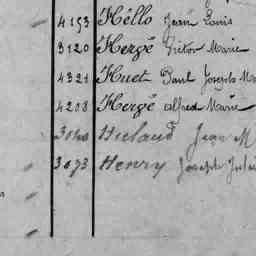 4193 Hello Jean Louis
3120 Hergé Victor Marie
4321 Huet Paul Joseph Ma
4208 Hergé Alfred Marie
Jean M
3073 Henry Joseph Julie